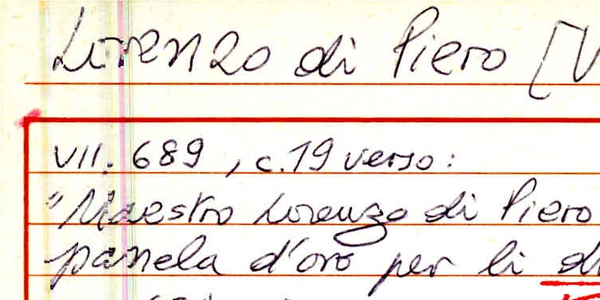 Lorenzo di Piero [V
VII. 689, c.19 verso:
"Maestro Lorenzo di Piero
panela d'oro per li di